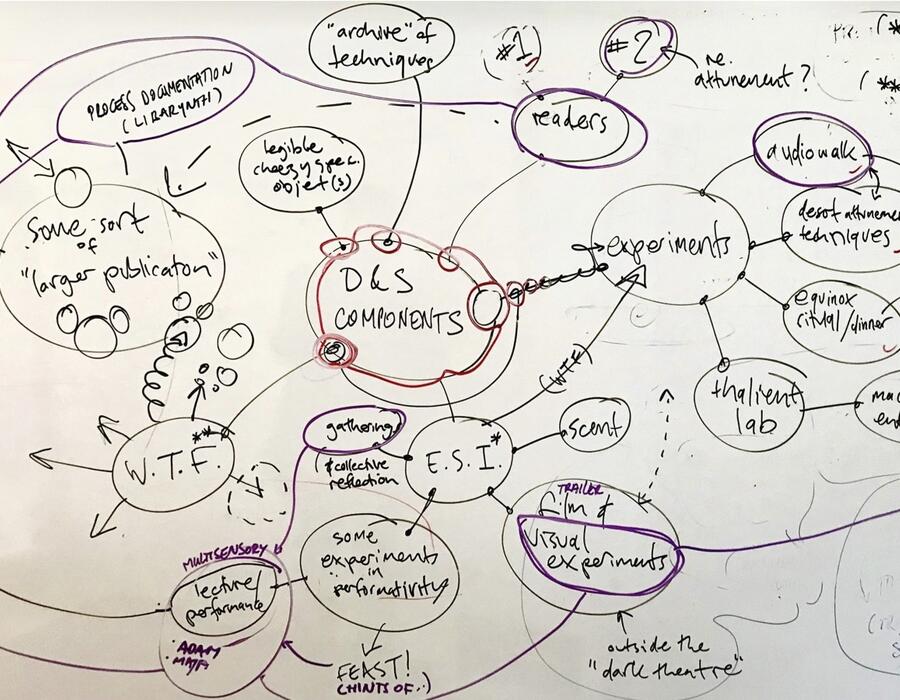 "archive" of
techniques
#1
#2
re.
attunement?
PROCESS DOCUMENTATION
(LIBRARYNTH)
readers
legible
objet(s)
audiowalk
some sort
of
"larger publication"
D&S
COMPONENTS
experiments
techniques
equinox
ritual/dinner
(WTF)
thalient
lab
W.T.F.
**
gathering
& collective
reflection
E.S.I.*
scent
TRAILER
film &
visual
experiments
MULTISENSORY
lecture/
performance
ADAM
some
experiments
in
performativity
FEAST!
(HINTS OF..)
outside the
"dark theatre"